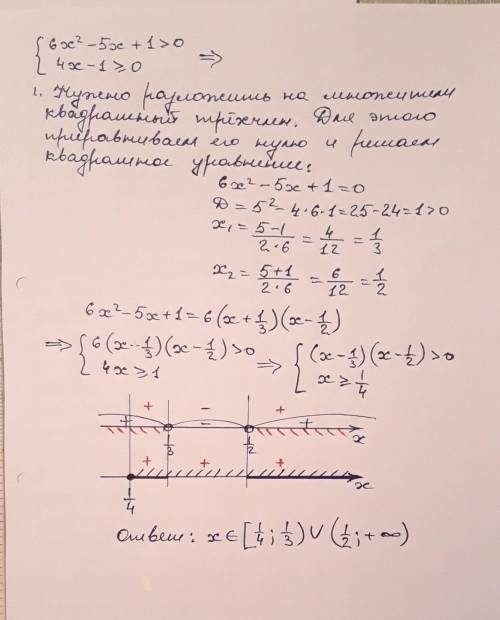 { 6x² - 5x + 1 > 0
{ 4x - 1 ≥ 0 ⇒
1. Нужно разложить на множители
квадратный трёхчлен. Для этого
приравниваем его нулю и решаем
квадратное уравнение:
6x² - 5x + 1 = 0
Д = 5² - 4·6·1 = 25 - 24 = 1 > 0
x₁ = (5-1)/(2·6) = 4/12 = 1/3
x₂ = (5+1)/(2·6) = 6/12 = 1/2
6x² - 5x + 1 = 6(x + 1/3)(x - 1/2)
⇒ { 6(x - 1/3)(x - 1/2) > 0 ⇒ { (x - 1/3)(x - 1/2) > 0
{ 4x ≥ 1 { x ≥ 1/4
+ - +
+ - +
1/3 1/2 x
+ + +
1/4 x
Ответ: x ∈ [1/4; 1/3) ∪ (1/2; +∞)